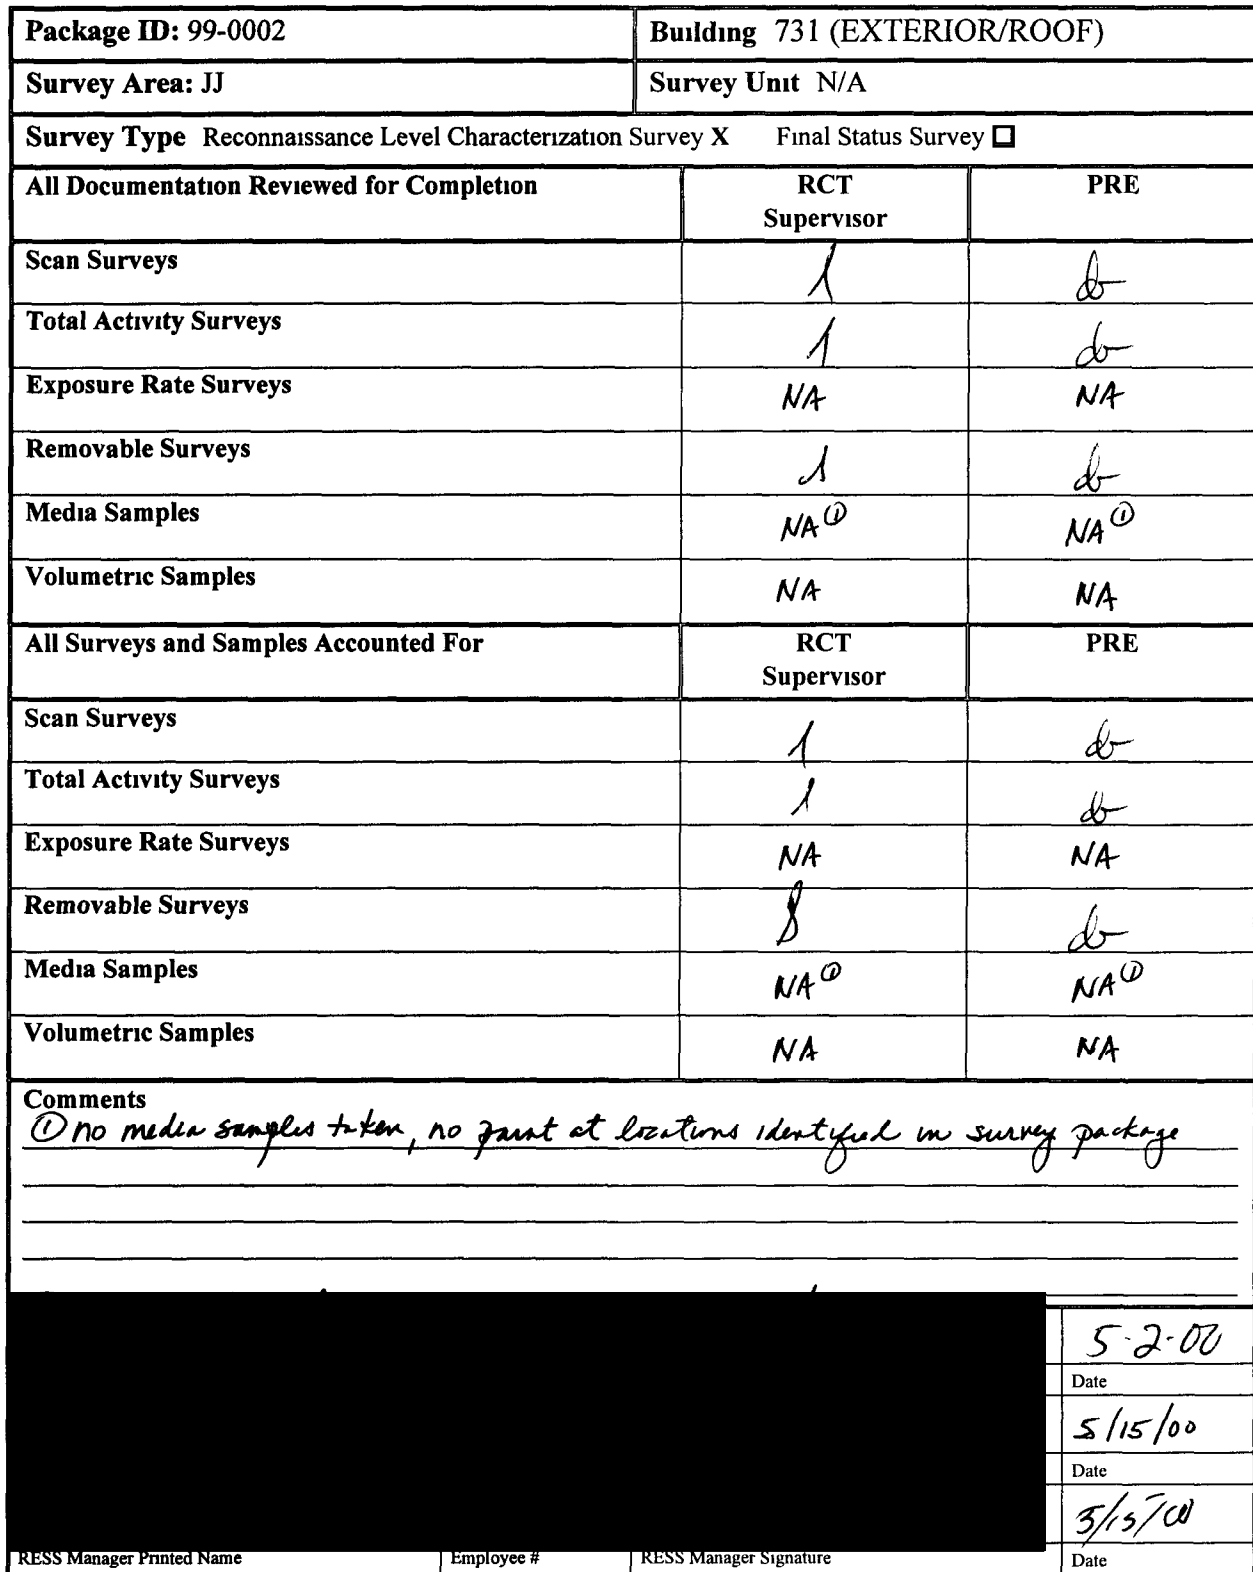 Package ID: 99-0002 Building 731 (EXTERIOR/ROOF)
Survey Area: JJ Survey Unit N/A
Survey Type Reconnaissance Level Characterization Survey X Final Status Survey ☐
All Documentation Reviewed for Completion RCT Supervisor PRE
Scan Surveys
Total Activity Surveys
Exposure Rate Surveys NA NA
Removable Surveys
Media Samples NA① NA①
Volumetric Samples NA NA
All Surveys and Samples Accounted For RCT Supervisor PRE
Scan Surveys
Total Activity Surveys
Exposure Rate Surveys NA NA
Removable Surveys
Media Samples NA① NA①
Volumetric Samples NA NA
Comments
① no media samples taken, no paint at locations identified in survey package
5-2-00
Date
5/15/00
Date
5/15/00
RESS Manager Printed Name Employee # RESS Manager Signature Date